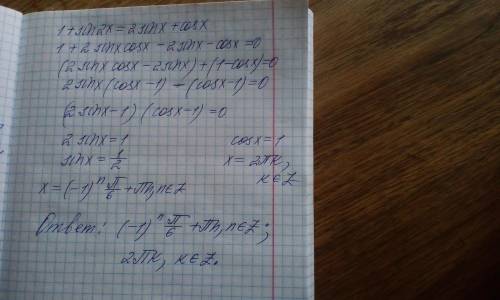 1+sin2x=2sinx+cosx
1+2sinxcosx-2sinx-cosx=0
(2sinxcosx-2sinx)+(1-cosx)=0
2sinx(cosx-1)-(cosx-1)=0
(2sinx-1)(cosx-1)=0
2sinx=1 cosx=1
sinx=1/2 x=2πк,
к∈Z
x=(-1)ⁿ π/6+πn, n∈Z
Ответ: (-1)ⁿ π/6+πn, n∈Z;
2πк, к∈Z.